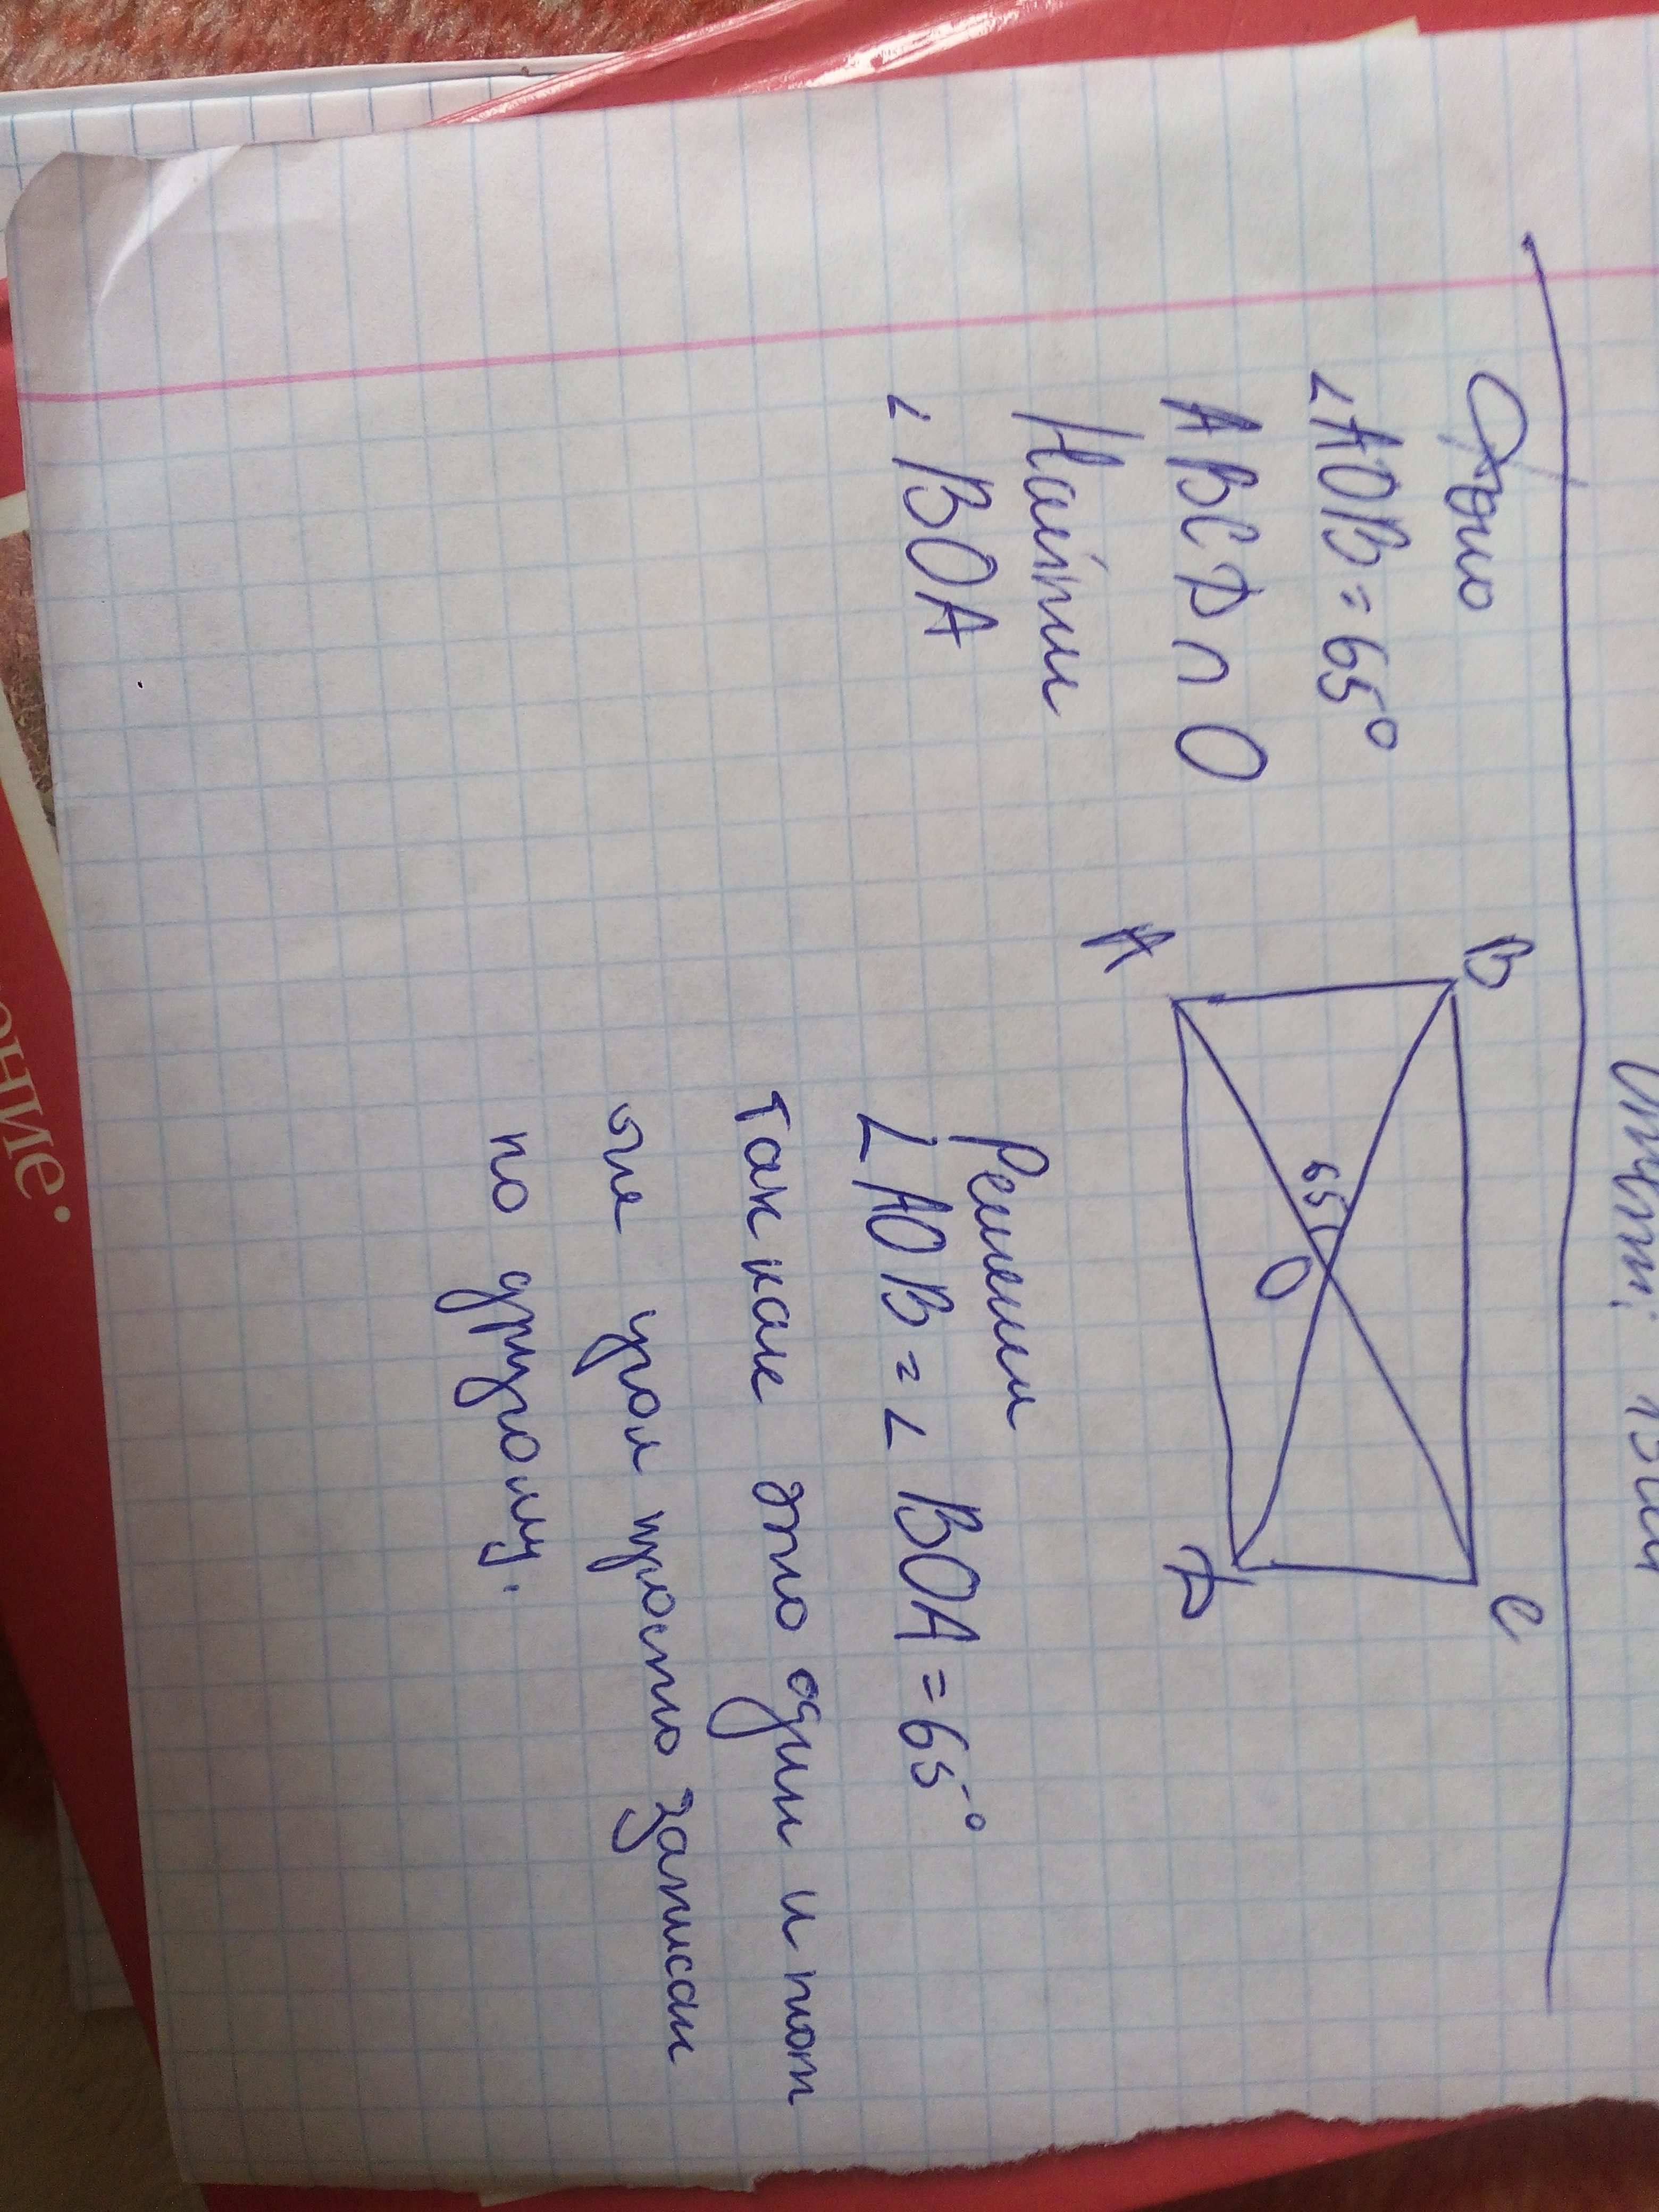 Ответ:
Дано
∠AOB = 65°
ABCD ∩ O
Найти
∠BOA
B
C
65
O
A
D
Решении
∠AOB = ∠BOA = 65°
так как это один и тот
же угол просто записан
по другому.
ОНИЕ.